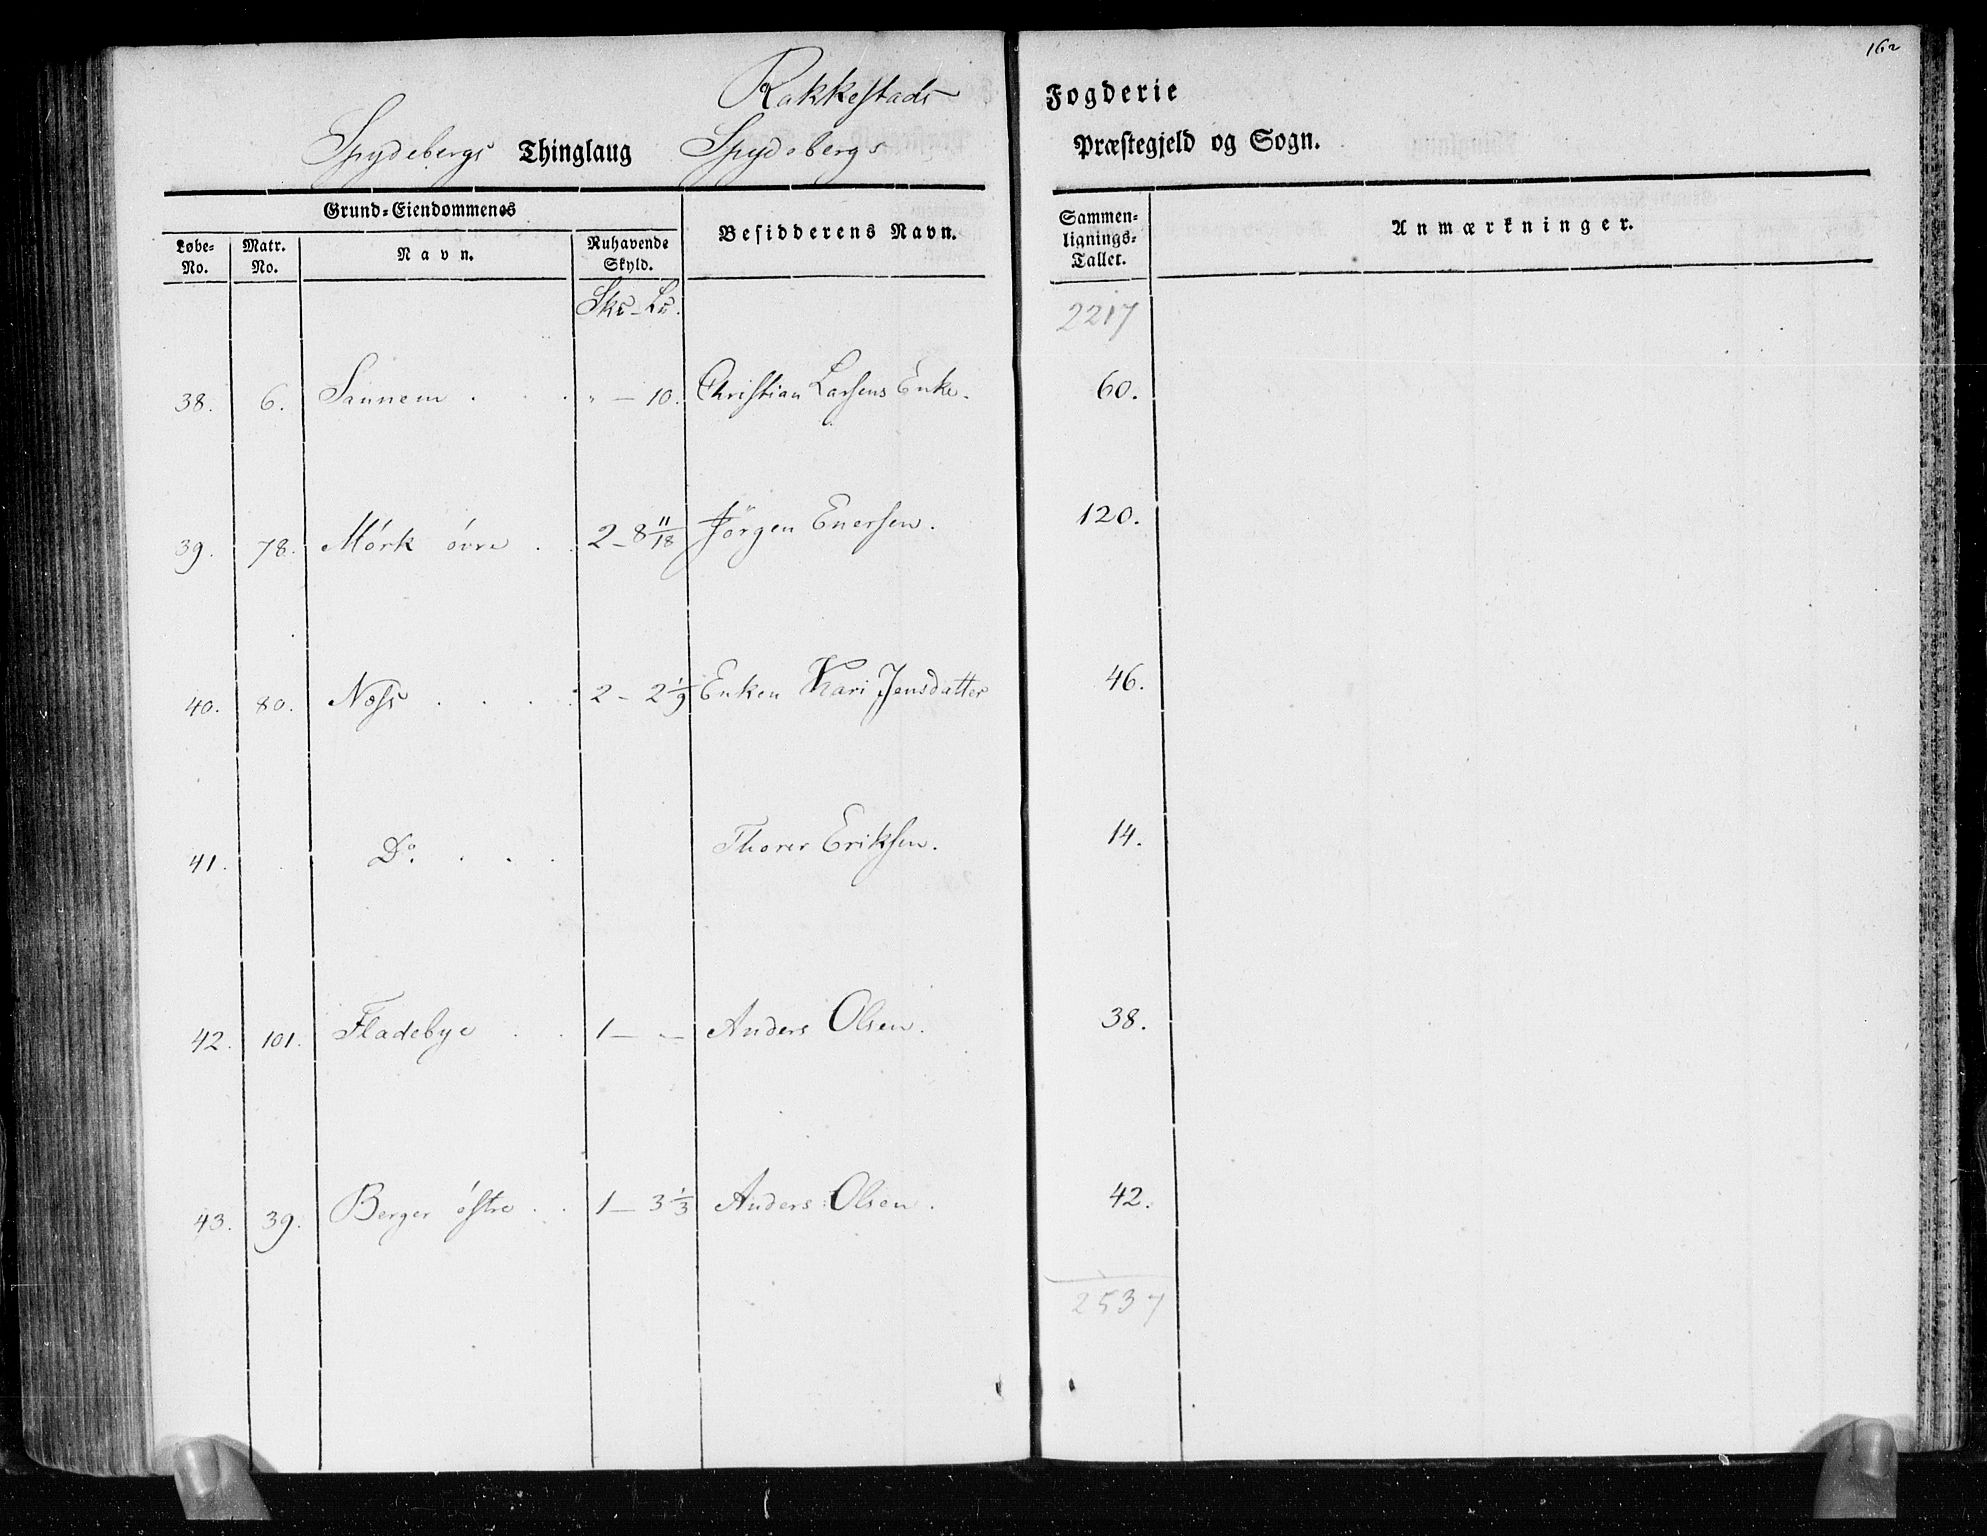 162
Rakkestads Fogderie
Spydebergs Thinglaug Spydebergs Præstegjeld og Sogn.
Grund-Eiendommenes
Løbe-No. Matr. No. Navn. Ruhavende Skyld. Besidderens Navn. Sammenlignings-Tallet. Anmærkninger.
2217
38. 6. . . . " — 10. Christian Larsens Enke. 60.
39. 78. Mörk övre . . 2 - 8 11/18 Jörgen Enersen. 120.
40. 80. Næss . . . . 2 - 2 1/9 Enken Kari Jensdatter 46.
41. . Do. . . . Thorer Eriksen. 14.
42. 101. Fladebye . . 1 — " — Anders Olsen. 38.
43. 39. Berger östre . . 1 — 3 1/3 Anders Olsen. 42.
2537